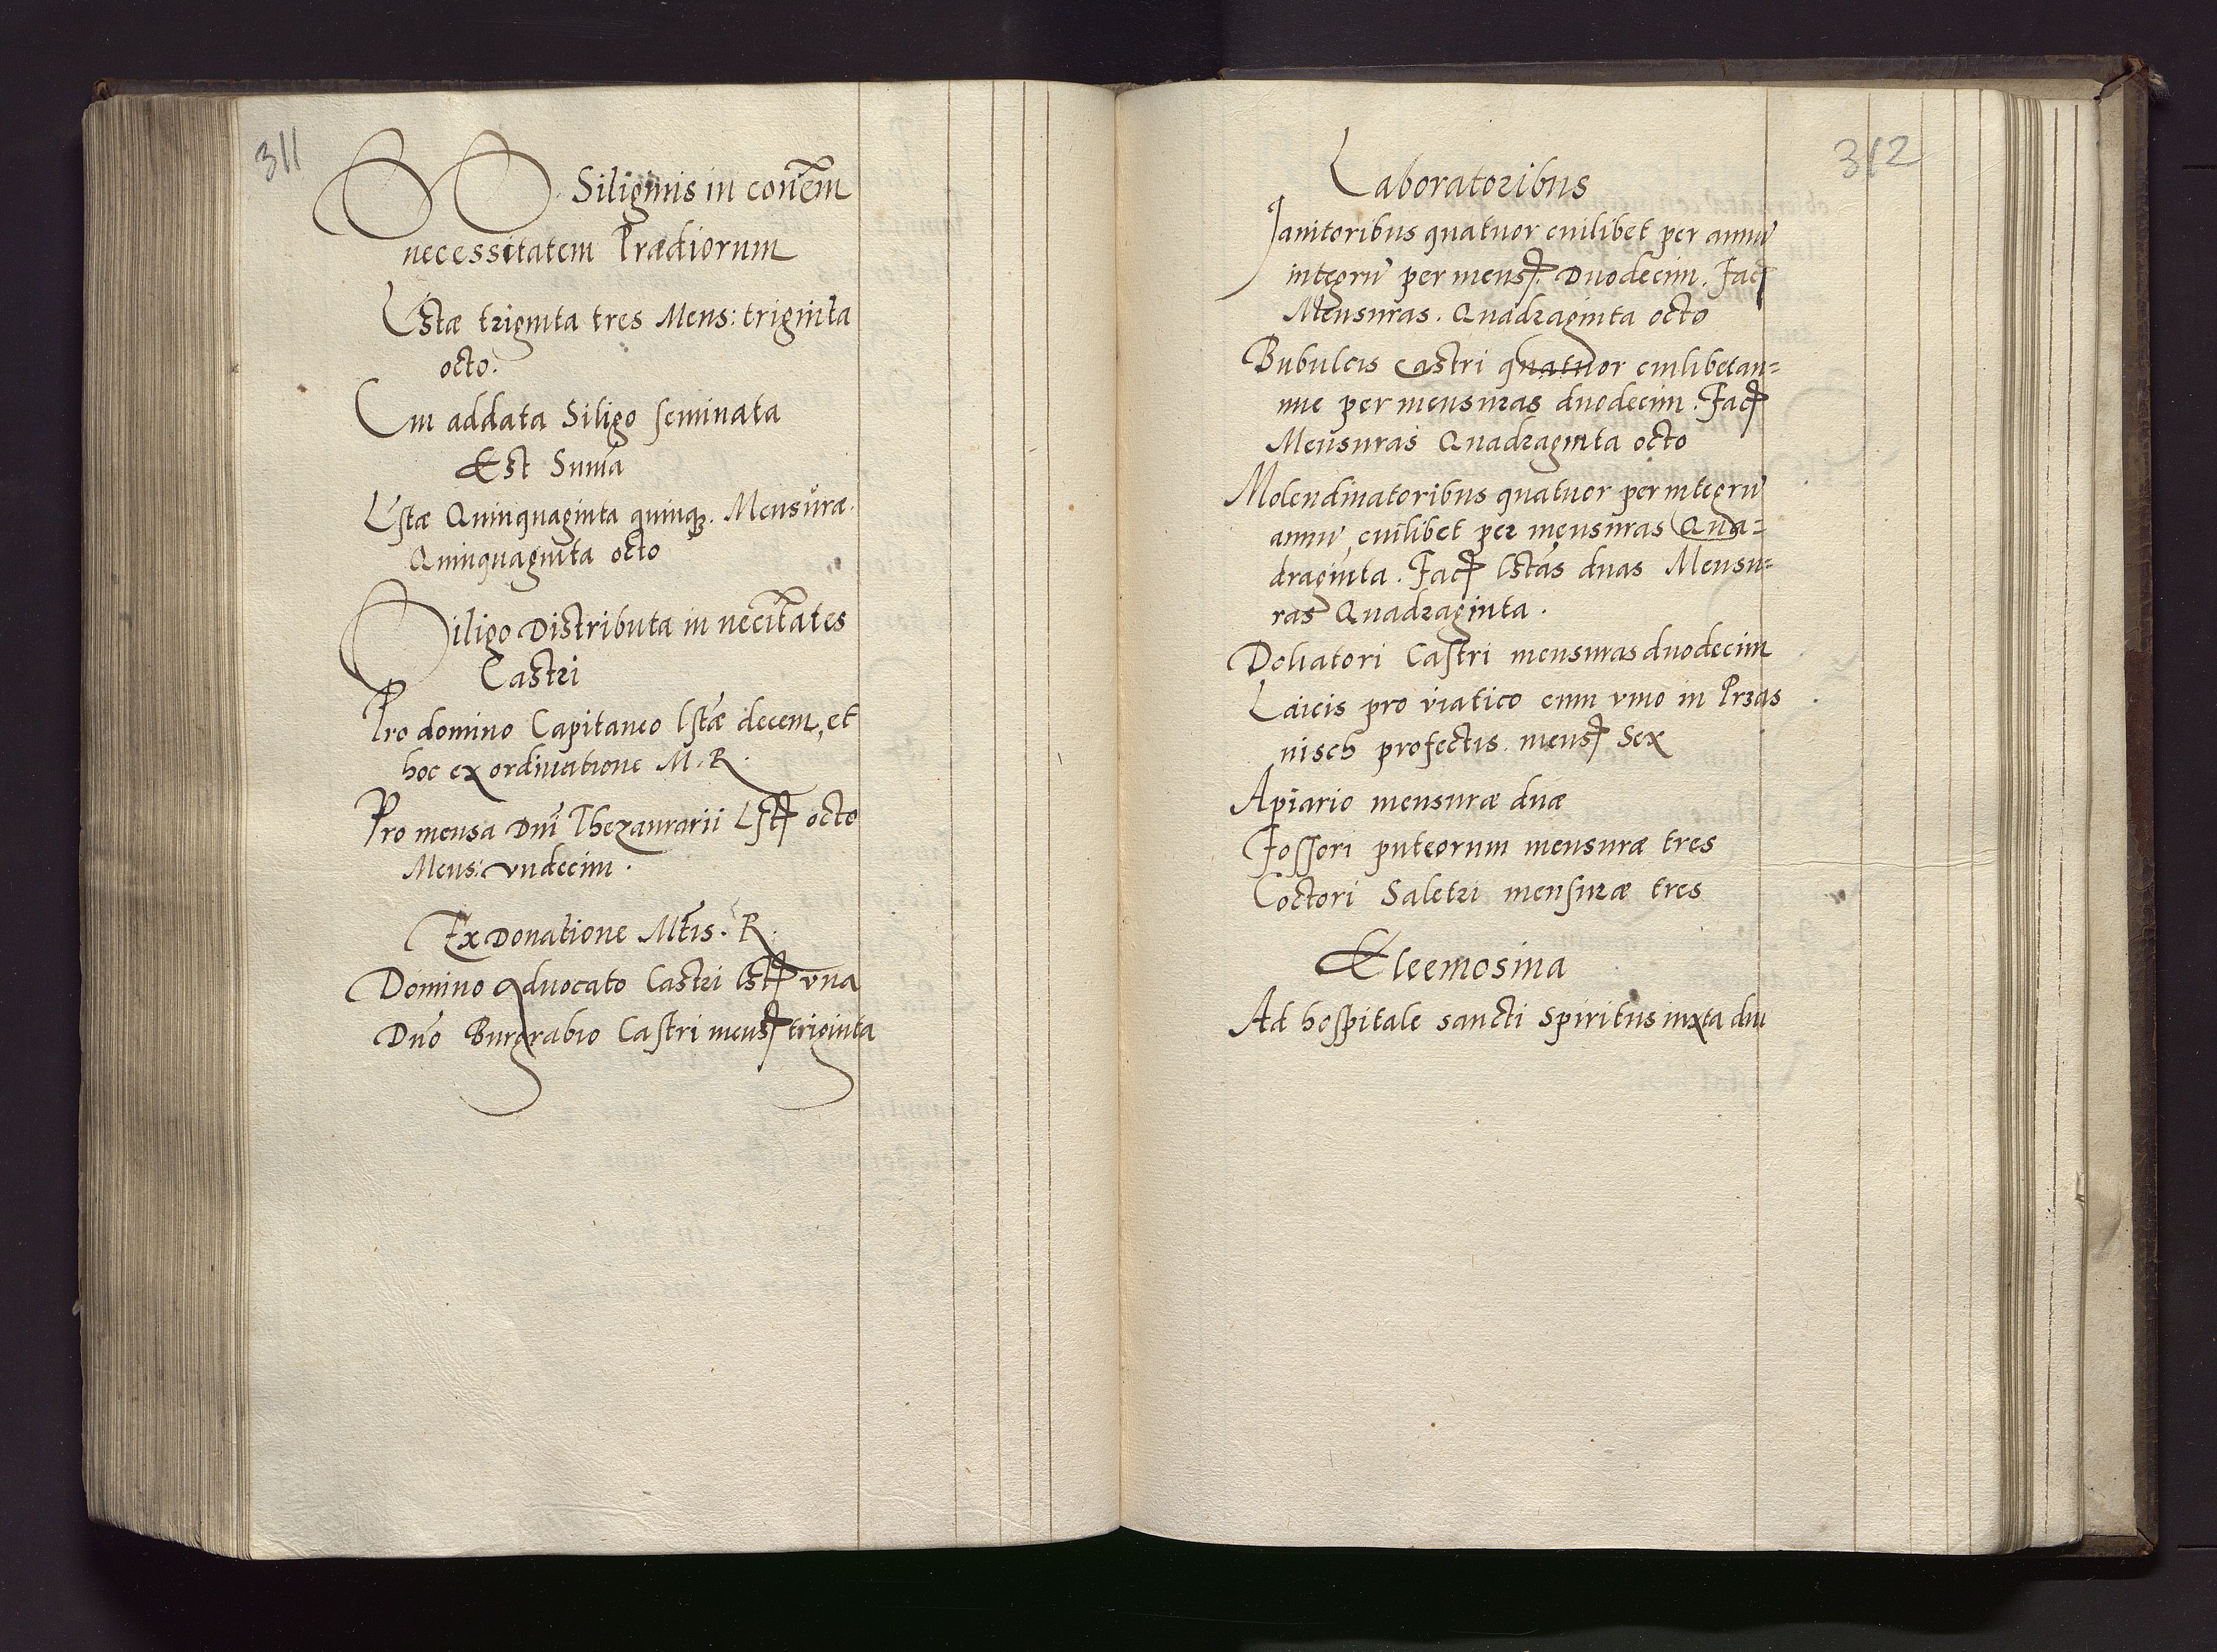 311
Siliginis in coñem
necessitatem Prædiorum
Lstæ triginta tres Mens: triginta
octo.
Cui addata Siligo seminata
Est Suma
Lstæ Quinquaginta quinqȝ. Mensuræ.
Quinquaginta octo
Siligo Distributa in necitates
Castri
Pro domino Capitaneo lstæ decem, et
hoc ex ordinatione M. R.
Pro mensa Dni Thezaurarii Lst octo
Mens: vndecim.
Ex Donatione Mtis. R.
Domino Aduocato Castri lst vna
Dno Burgrabio Castri mens triginta
312
Laboratoribus
Janitoribus quatuor cuilibet per annu
integru per mens. Duodecim. Fac
Mensuras. Quadraginta octo
Bubulcis Castri quatuor cuilibet an=
nue per mensuras duodecim. Fac
Mensuras Quadraginta octo
Molendinatoribus quatuor per integru
annu, cuilibet per mensuras Qua=
draginta. Fac lstas duas Mensu=
ras Quadraginta.
Doliatori Castri mensuras duodecim
Laicis pro viatico cum vino in Przas
nisch profectis. mens Sex
Apiario mensuræ duæ
Fossori puteorum mensuræ tres
Coctori Saletri mensuræ tres
Eleemosina
Ad hospitale sancti Spiritus iuxta diu